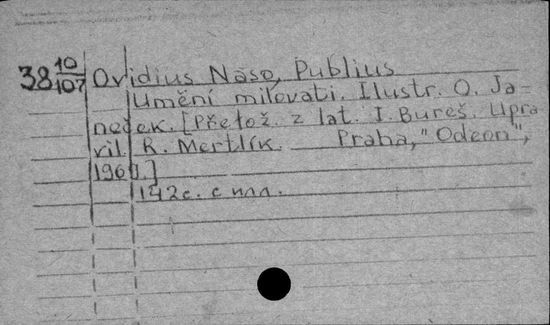 38 10/107 Ovidius Naso, Publius
Umění milovati. Ilustr. O. Ja-
neček. [Přelož. z lat. I. Bureš. Upra
vil R. Mertlík. Praha, "Odeon",
]
142c. с илл.